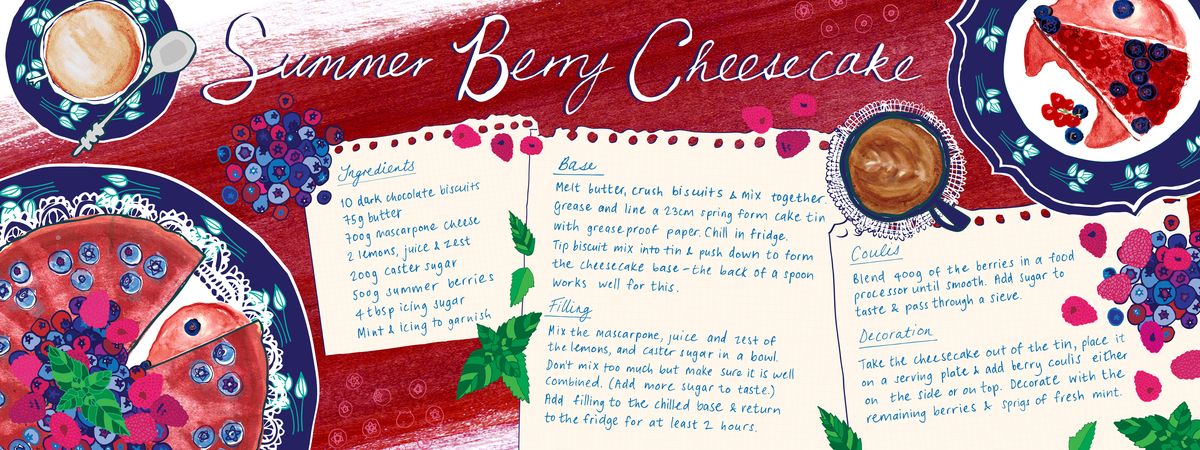 Summer Berry Cheesecake
Ingredients
10 dark chocolate biscuits
75g butter
700g mascarpone cheese
2 lemons, juice & zest
200g caster sugar
500g summer berries
4 tbsp icing sugar
Mint & icing to garnish
Base
Melt butter, crush biscuits & mix together.
Grease and line a 23cm spring form cake tin
with greaseproof paper. Chill in fridge.
Tip biscuit mix into tin & push down to form
the cheesecake base - the back of a spoon
works well for this.
Filling
Mix the mascarpone, juice and zest of
the lemons, and caster sugar in a bowl.
Don't mix too much but make sure it is well
combined. (Add more sugar to taste.)
Add filling to the chilled base & return
to the fridge for at least 2 hours.
Coulis
Blend 400g of the berries in a food
processor until smooth. Add sugar to
taste & pass through a sieve.
Decoration
Take the cheesecake out of the tin, place it
on a serving plate & add berry coulis either
on the side or on top. Decorate with the
remaining berries & sprigs of fresh mint.